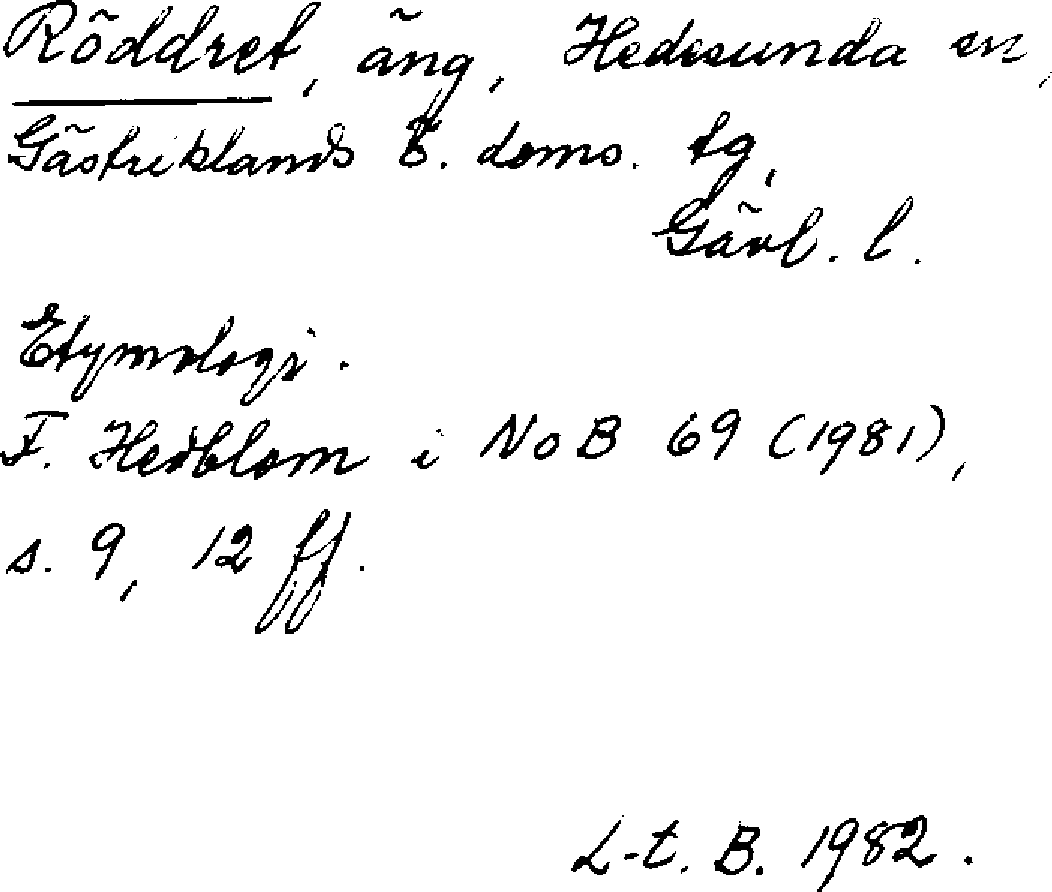 Röddret, äng, Hedesunda sn,
Gästriklands Ö. doms. tg,
Gävl. l.
Etymologi.
F. Hedblom i NoB 69 (1981),
s. 9, 12 ff.
L-t. B. 1982.